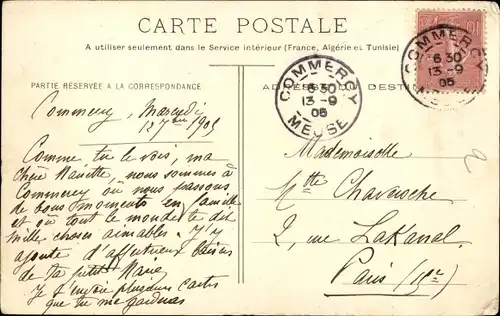 CARTE POSTALE
A utiliser seulement dans le Service intérieur (France, Algérie et Tunisie)
PARTIE RÉSERVÉE A LA CORRESPONDANCE
Commercy, Mercredi
13 7bre 1905
Comme tu le vois, ma
chère Nanette, nous sommes à
Commercy où nous passons
de bons moments en famille
et où tout le monde te dit
mille choses aimables. J'y
ajoute d'affectueux baisers
de ta petite Marie
Je t'envoie plusieurs cartes
que tu me garderas
10
COMMERCY
6 30
13 -9
05
COMMERCY
6 30
13 -9
05
MEUSE
Mademoiselle
Ntte Chavroche
2, rue Lakanal
Paris (15e)
a